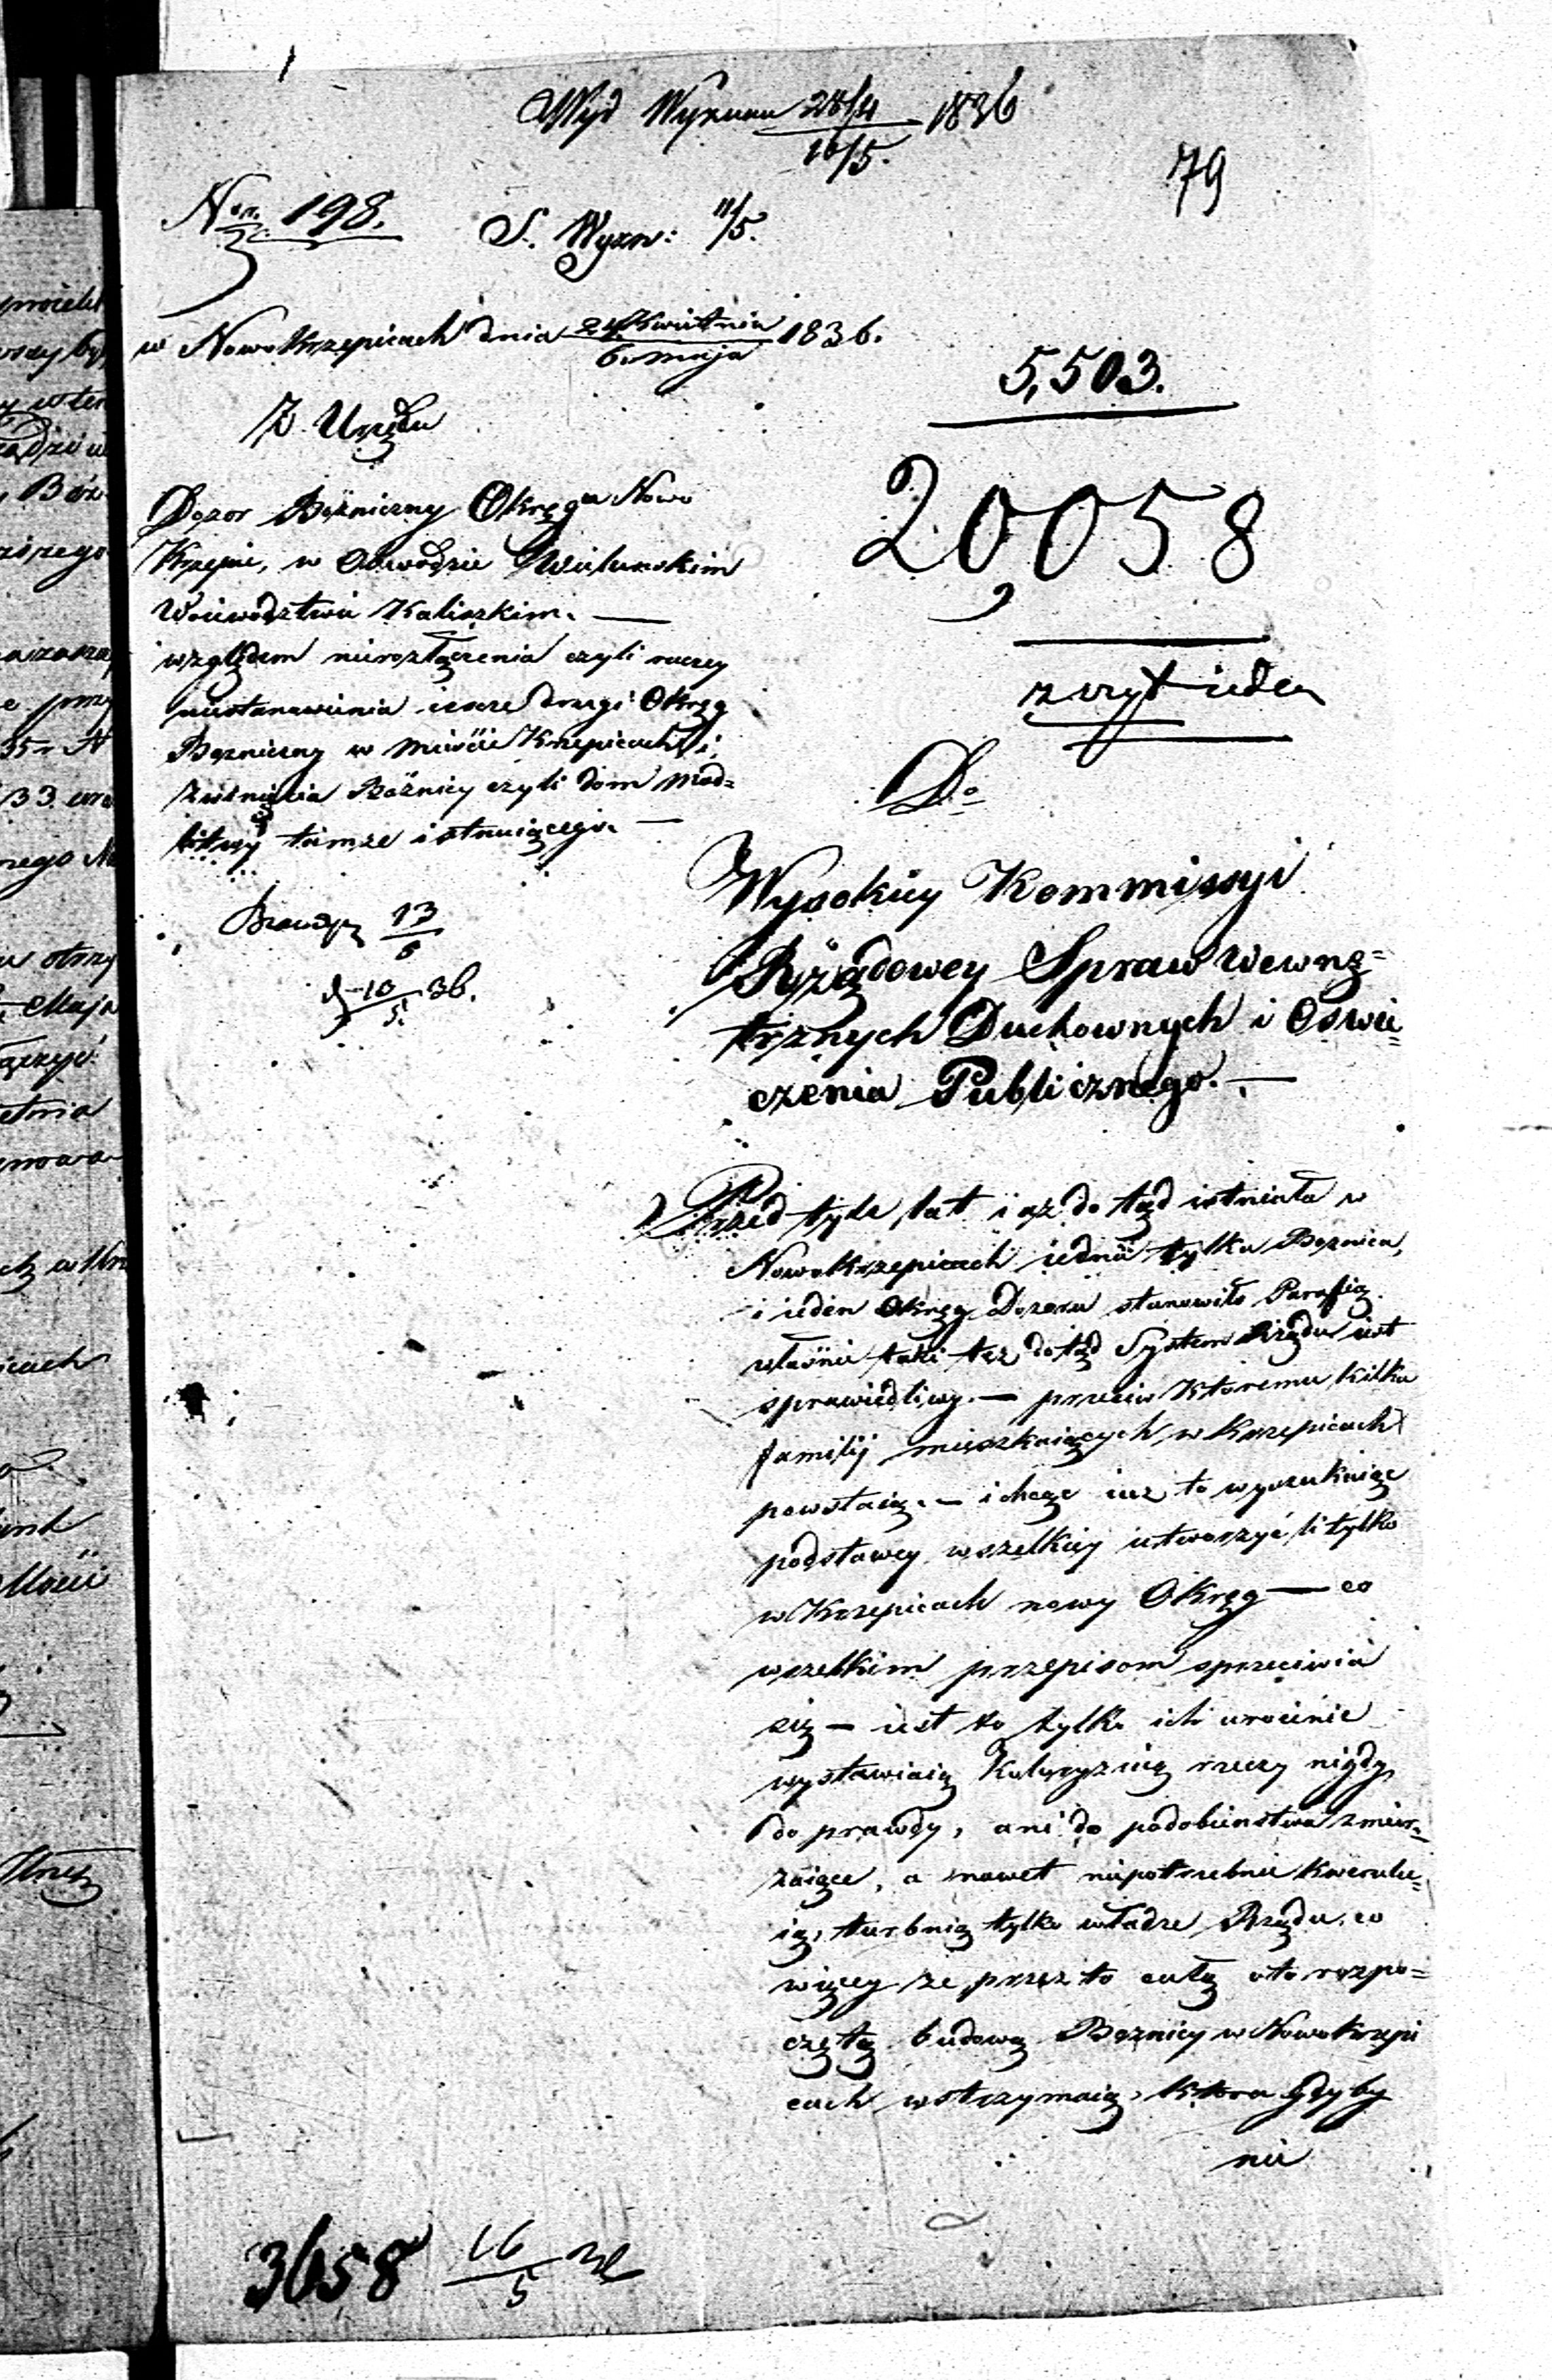 Wyd Wyznań 28/4 1836
16/5.
79
Nr. 198. S. Wyzn: 11/5.
w Nowokrzepicach dnia 24 Kwietnia 1836.
6. maja
5,503.
Z Urzędu
20058
Dozor Bożniczny Okręgu Nowo
Krzepic, w Obwodzie Wieluńskim
Woiewodztwie Kaliszkim. —
zszyt ieden
względem nierozłączenia czyli raczey
nieustanowienia ieszcze drugi Okręg
Bożniczny w mieście Krzepicach i
zwinięcia Bóżnicy czyli dom mod=
litwy tamże istnuiącego. —
Do
Wysokiey Kommissyi
Rządowey Spraw Wewnę=
trznych Duchownych i Oswie=
czenia Publicznego. —
13
10 36.
5.
Przed tyle lat i aż do tąd istniała w
Nowokrzepicach iedna tylko Boznica,
i ieden Okręg Dozoru stanowiło Parafią.
właśnie taki też dotąd System Rządu iest
sprawiedliwy. — przeciw ktoremu kilka
familij mieszkaiących w Krzepicach
powstaią. — i chcąc iuz to wyszukuiąc
podstawey wszelkiey utworzyć li tylko
w Krzepicach nowy Okręg — co
wszelkim przepisom sprzeciwia
się — iest to tylko ich uroienie
wystawiaią rzeczy nigdy
do prawdy, ani do podobieństwa zmier=
zaiące, a nawet niepotrzebnie kwerulu=
ią, turbuią tylko władze Rządu, co
więcey że przez to całą oto rozpo=
czętą budowę Boznicy w Nowokrzepi
cach wstrzymaią, ktora gdyby
nie
3658 16
5